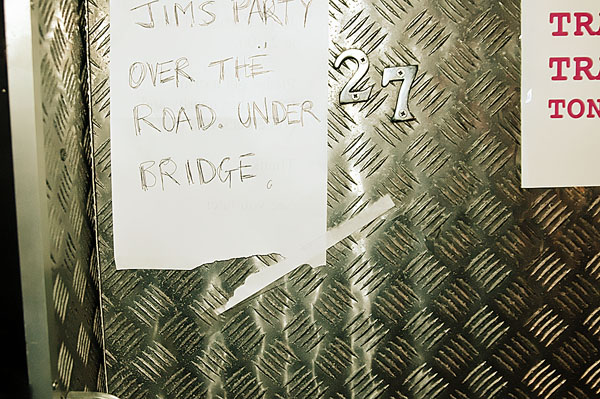 JIMS PARTY
OVER THE
ROAD. UNDER
BRIDGE.
27
TRA
TRA
TON